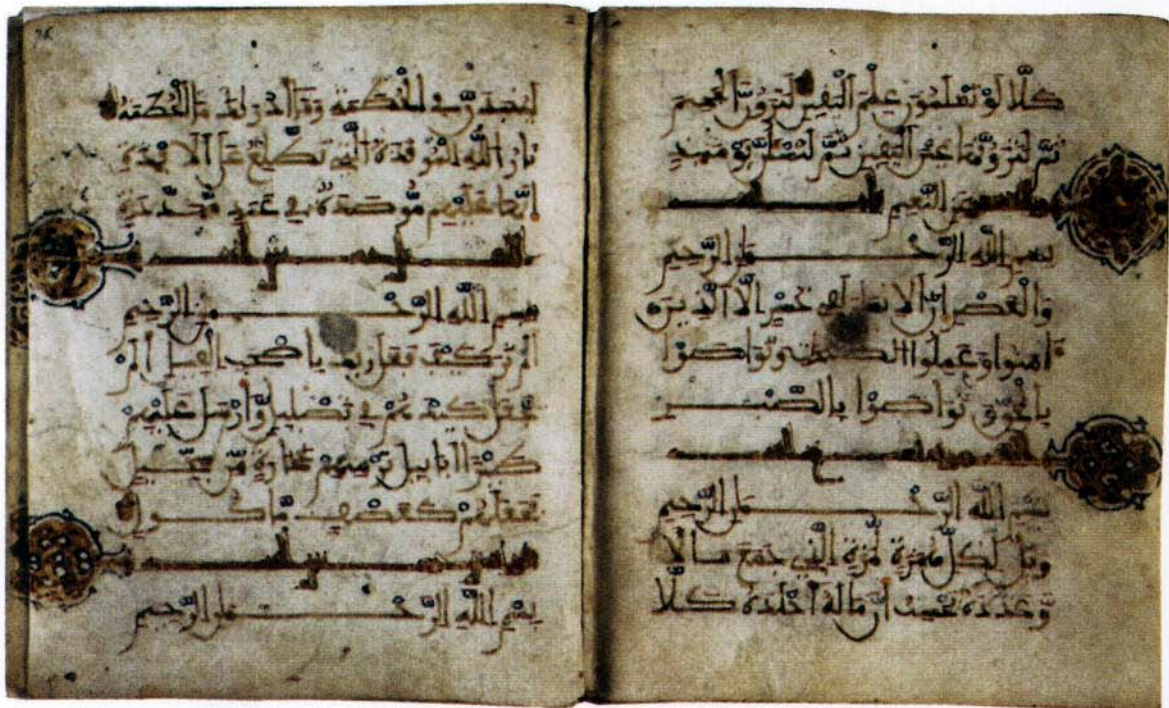 كَلَّا لَوْ تَعْلَمُونَ عِلْمَ الْيَقِينِ لَتَرَوُنَّ الْجَحِيمَ
ثُمَّ لَتَرَوُنَّهَا عَيْنَ الْيَقِينِ ثُمَّ لَتُسْـَٔلُنَّ يَوْمَئِذٍ
عَنِ النَّعِيمِ
بِسْمِ اللَّهِ الرَّحْمَٰنِ الرَّحِيمِ
وَالْعَصْرِ إِنَّ الْإِنسَٰنَ لَفِي خُسْرٍ إِلَّا الَّذِينَ
ءَامَنُوا وَعَمِلُوا الصَّٰلِحَٰتِ وَتَوَاصَوْا
بِالْحَقِّ وَتَوَاصَوْا بِالصَّبْرِ
بِسْمِ اللَّهِ الرَّحْمَٰنِ الرَّحِيمِ
وَيْلٌ لِكُلِّ هُمَزَةٍ لُمَزَةٍ الَّذِي جَمَعَ مَالًا
وَعَدَّدَهُ يَحْسِبُ أَنَّ مَالَهُ أَخْلَدَهُ كَلَّا
لَيُنبَذَنَّ فِي الْحُطَمَةِ وَمَا أَدْرَىٰكَ مَا الْحُطَمَةُ
نَارُ اللَّهِ الْمُوقَدَةُ الَّتِي تَطَّلِعُ عَلَى الْأَفْـِٔدَةِ
إِنَّهَا عَلَيْهِم مُّوصَدَةٌ فِي عَمَدٍ مُّمَدَّدَةٍ
بِسْمِ اللَّهِ الرَّحْمَٰنِ الرَّحِيمِ
أَلَمْ تَرَ كَيْفَ فَعَلَ رَبُّكَ بِأَصْحَٰبِ الْفِيلِ أَلَمْ
يَجْعَلْ كَيْدَهُمْ فِي تَضْلِيلٍ وَأَرْسَلَ عَلَيْهِمْ
طَيْرًا أَبَابِيلَ تَرْمِيهِم بِحِجَارَةٍ مِّن سِجِّيلٍ
فَجَعَلَهُمْ كَعَصْفٍ مَّأْكُولٍ
بِسْمِ اللَّهِ الرَّحْمَٰنِ الرَّحِيمِ